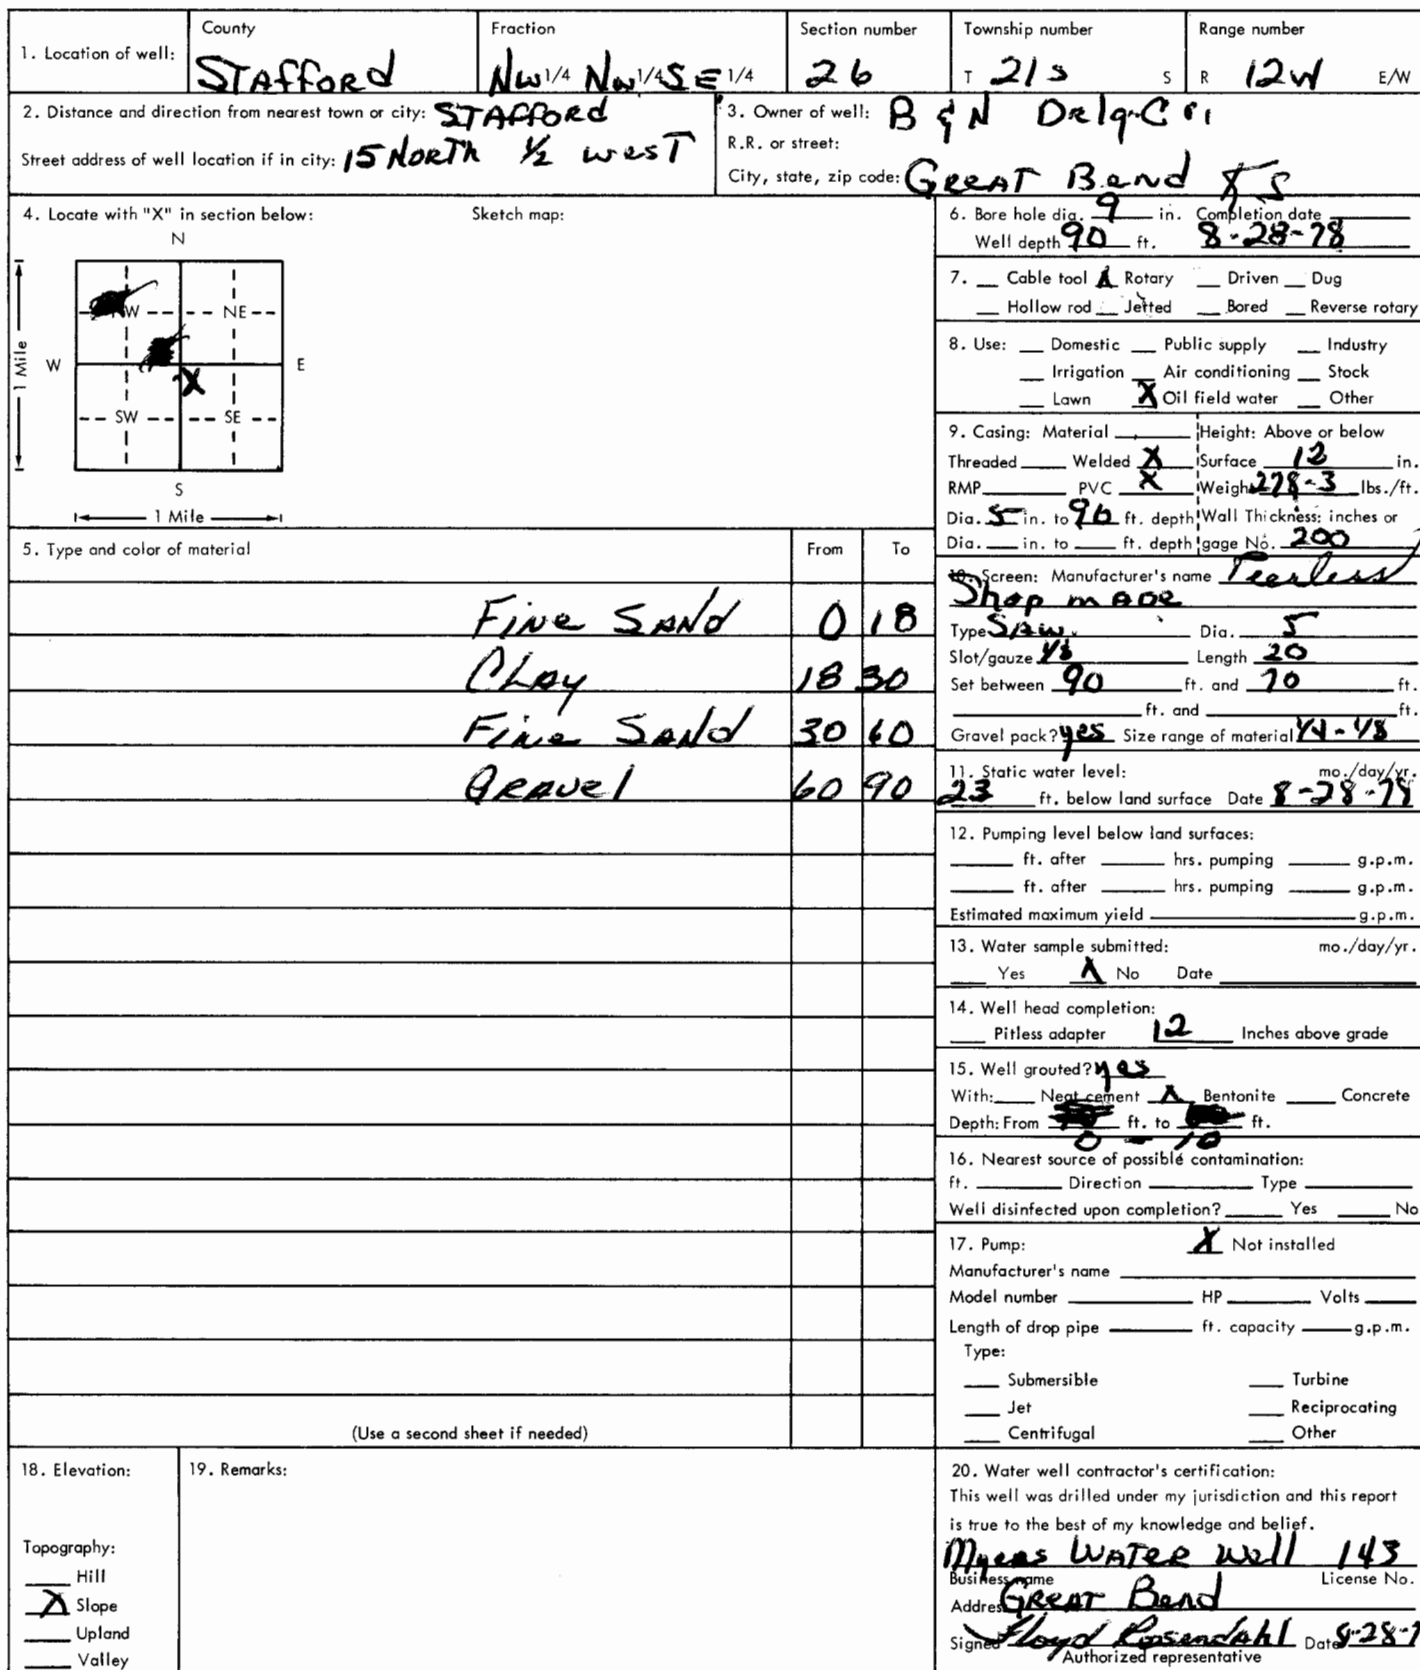 County Fraction Section number Township number Range number
1. Location of well: STAFFORD NW 1/4 NW 1/4 SE 1/4 26 T 21S S R 12W E/W
2. Distance and direction from nearest town or city: STAFFORD
Street address of well location if in city: 15 NORTH 1/2 WEST
3. Owner of well: B & N Drlg. Co.
R.R. or street:
City, state, zip code: GREAT Bend KS
4. Locate with "X" in section below: Sketch map:
N
NW NE
W E
X
SW SE
S
1 Mile
1 Mile
5. Type and color of material From To
Fine SANd 0 18
CLAy 18 30
Fine SANd 30 60
GRAVel 60 90
(Use a second sheet if needed)
6. Bore hole dia. 9 in. Completion date
Well depth 90 ft. 8-28-78
7. Cable tool X Rotary Driven Dug
Hollow rod Jetted Bored Reverse rotary
8. Use: Domestic Public supply Industry
Irrigation Air conditioning Stock
Lawn X Oil field water Other
9. Casing: Material Height: Above or below
Threaded Welded X Surface 12 in.
RMP PVC X Weight 278-3 lbs./ft.
Dia. 5 in. to 90 ft. depth Wall Thickness: inches or
Dia. in. to ft. depth gage No. 200
10. Screen: Manufacturer's name Peerless
Shop mADE
Type SAW. Dia. 5
Slot/gauze 1/8 Length 20
Set between 90 ft. and 70 ft.
ft. and ft.
Gravel pack? yes Size range of material 1/4 - 1/8
11. Static water level: mo./day/yr.
23 ft. below land surface Date 8-28-78
12. Pumping level below land surfaces:
ft. after hrs. pumping g.p.m.
ft. after hrs. pumping g.p.m.
Estimated maximum yield g.p.m.
13. Water sample submitted: mo./day/yr.
Yes X No Date
14. Well head completion:
Pitless adapter 12 Inches above grade
15. Well grouted? yes
With: Neat cement X Bentonite Concrete
Depth: From ft. to ft.
0 - 10
16. Nearest source of possible contamination:
ft. Direction Type
Well disinfected upon completion? Yes No
17. Pump: X Not installed
Manufacturer's name
Model number HP Volts
Length of drop pipe ft. capacity g.p.m.
Type:
Submersible Turbine
Jet Reciprocating
Centrifugal Other
18. Elevation:
Topography:
Hill
X Slope
Upland
Valley
19. Remarks:
20. Water well contractor's certification:
This well was drilled under my jurisdiction and this report
is true to the best of my knowledge and belief.
Myers WATER Well 143
Business name License No.
Address GREAT Bend
Signed Floyd Rosendahl Date 8-28-7
Authorized representative